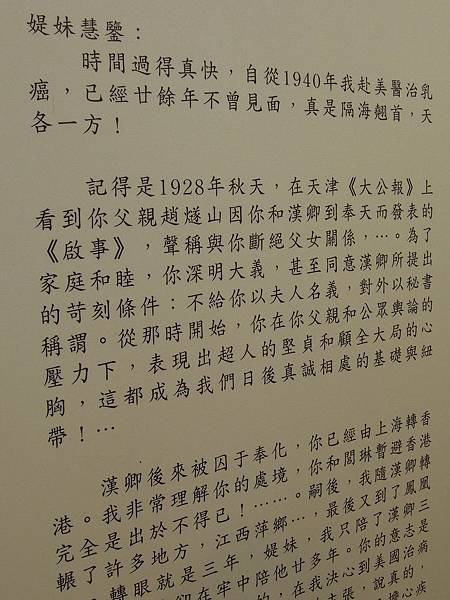 媞妹慧鑒：
時間過得真快，自從1940年我赴美醫治乳
癌，已經廿餘年不曾見面，真是隔海翹首，天
各一方！
記得是1928年秋天，在天津《大公報》上
看到你父親趙燧山因你和漢卿到奉天而發表的
《啟事》，聲稱與你斷絕父女關係，…。為了
家庭和睦，你深明大義，甚至同意漢卿所提出
的苛刻條件：不給你以夫人名義，對外以秘書
稱謂。從那時開始，你在你父親和公眾輿論的
壓力下，表現出超人的堅貞和顧全大局的心
胸，這都成為我們日後真誠相處的基礎與紐
帶！…
漢卿後來被囚于奉化，你已經由上海轉香
港。我非常理解你的處境，你和閭琳暫避香港
完全是出於不得已！……。嗣後，我隨漢卿轉
輾了許多地方，江西萍鄉…，最後又到了鳳凰
轉眼就是三年，媞妹，我只陪了漢卿三
卻在牢中陪他廿多年。你的意志是
的，在我決心到美國治病
主張，說真的，
擔心疾